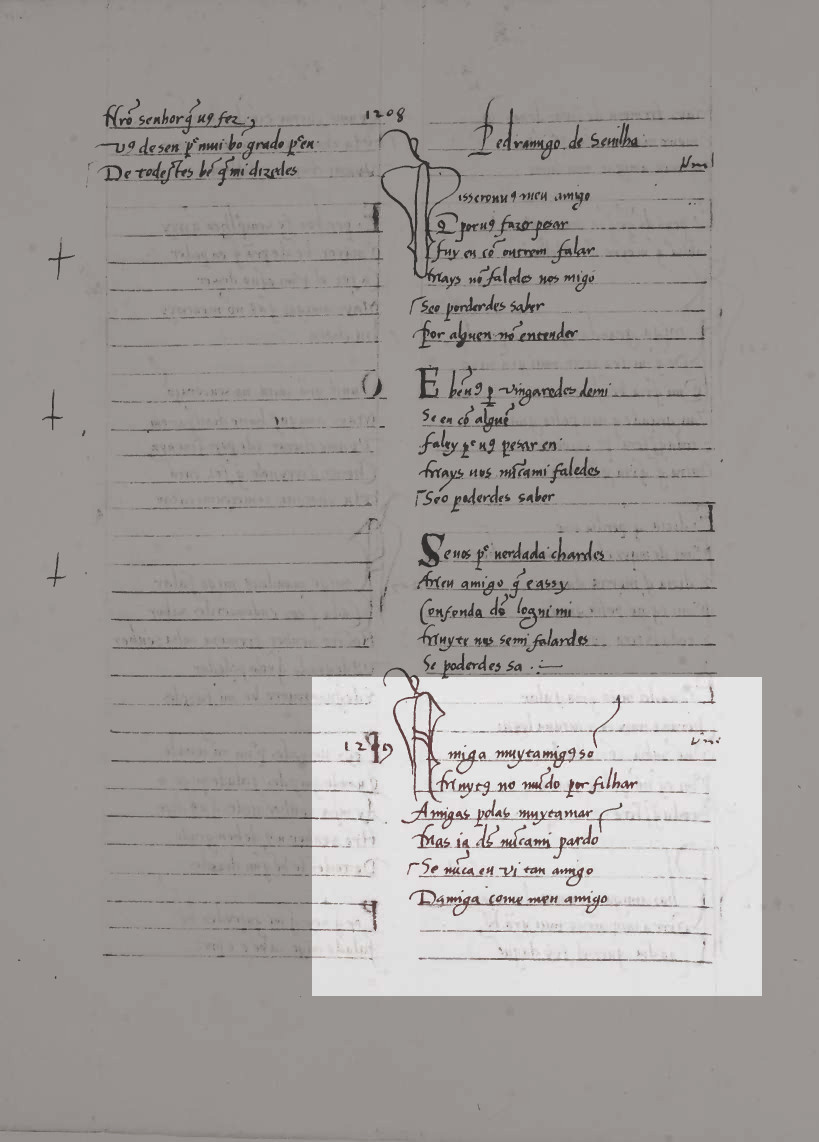 Nr̃o senhor q̃ uꝯ fez,
uꝯ de sen p̃ mui bõ grado p̃ en
De todes̃tes bẽ q̃ mi dizedes
1208
Pedramigo de Seuilha
isseronuꝯ meu amigo
Q̃ poruꝯ fazer pesar
fuy eu cõ outrem falar
Mays nõ faledes uos migo
Seo poderdes saber
Por alguen nõ entender
E bẽ uꝯ ꝑ vingaredes demi
Se eu cõ alguẽ
faley ꝑ uꝯ pesar en
Mays uos nũcami faledes
Seo poderdes saber
Se uos p̃ uerdada chardes
Meu amigo q̃ e assy
Confonda dẽs logui mi
Muyte uos semi falardes
Se poderdes sa
1209
miga muytamigꝯ so
Muytꝯ no mũdo por filhar
Amigas polas muytamar
Mas ia dẽs nũcami pardo
Se nũca eu vi tan amigo
Damiga come meu amigo